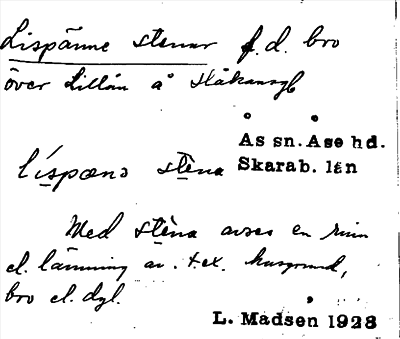 Lispänne stenar f.d. bro
över Lillån å Håkansg
Ås sn. Åse hd.
Skarab. län
li´spænə stè̱na
Med stè̱na avses en ruin
el. lämning av t.ex. husgrund,
bro el. dyl.
L. Madsen 1928